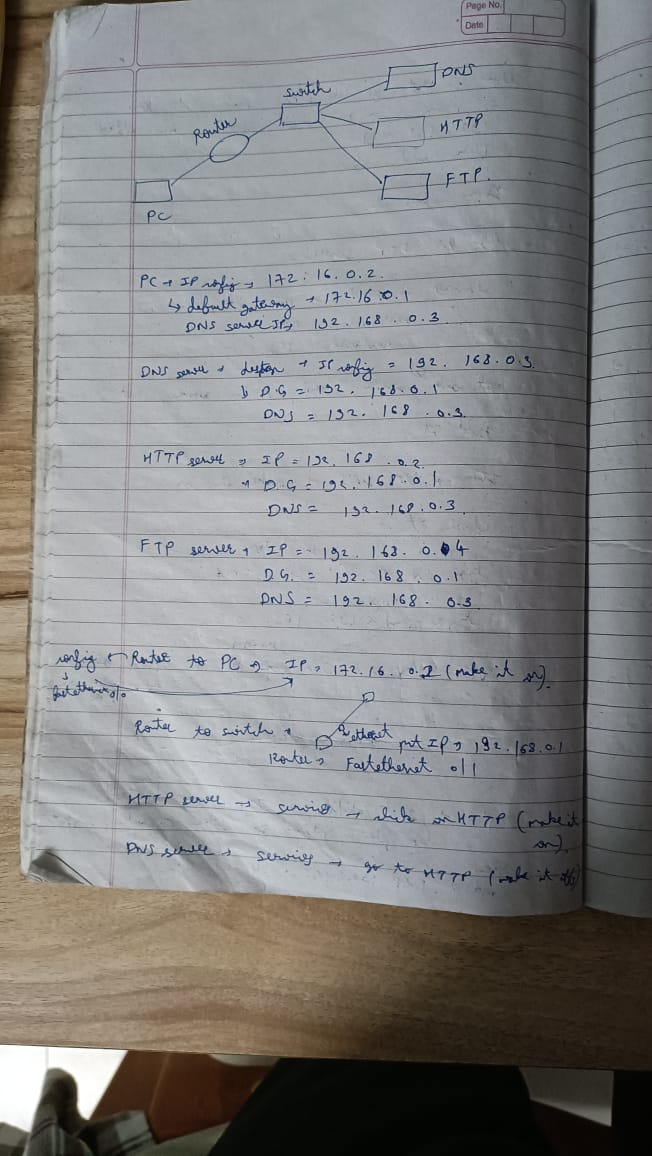 Page No.
Date
DNS
Switch
Router
HTTP
FTP.
PC
PC → IP config → 172.16.0.2.
↳ default gateway → 172.16.0.1
DNS server IP → 192.168.0.3
DNS server → desktop → IP config = 192.168.0.3.
↳ D.G = 192.168.0.1
DNS = 192.168.0.3.
HTTP server → IP = 192.168.0.2.
→ D.G = 192.168.0.1
DNS = 192.168.0.3.
FTP server → IP = 192.168.0.4
D.G. = 192.168.0.1
DNS = 192.168.0.3
config ← Router to PC → IP → 172.16.0.1 (make it on).
fastethernet 0/0
Router to switch →
put IP → 192.168.0.1
Router → Fastethernet 0/1
HTTP server → services → click on HTTP (make it
on).
DNS server → services → go to HTTP (make it off)